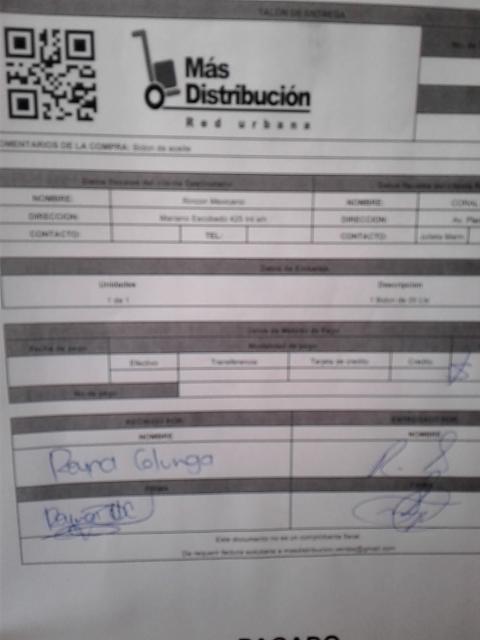 TALON DE ENTREGA
No. de
Más
Distribución
Red urbana
COMENTARIOS DE LA COMPRA: Bidon de aceite
NOMBRE: Rincon Mexicano NOMBRE: CORAL
DIRECCION: Mariano Escobedo 425 int s/n DIRECCION: Av. Pla
CONTACTO: TEL: CONTACTO: Julieta Marin
Datos de Embarque
Unidades Descripcion
1 de 1 1 Bidon de 20 Lts
Datos de Metodo de Pago
Fecha de pago Modalidad de pago
Efectivo Transferencia Tarjeta de credito Credito X
No de pago
RECIBIDO POR: ENTREGADO POR:
NOMBRE NOMBRE
Colunga R.
FIRMA FIRMA
Este documento no es un comprobante fiscal
De requerir factura solicitarla a masdistribucion.ventas@gmail.com
PAGADO